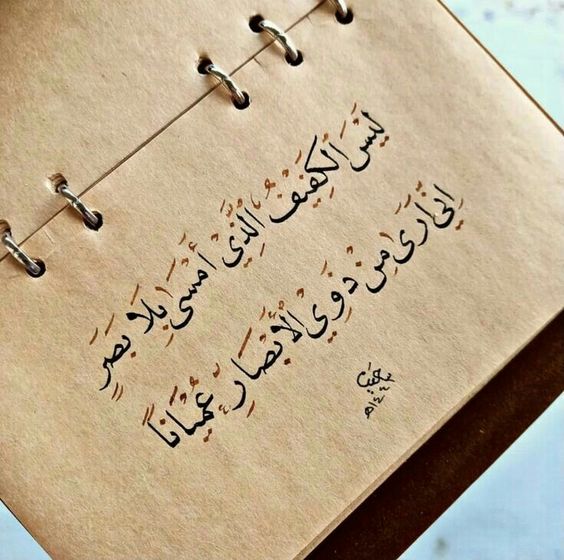 لَيْسَ الْكَفِيْفُ الَّذِيْ أَمْسَى بِلَا بَصَرٍ
إِنِّيْ أَرَى مِنْ ذَوِيْ الْأَبْصَارِ عُمْيَانًا